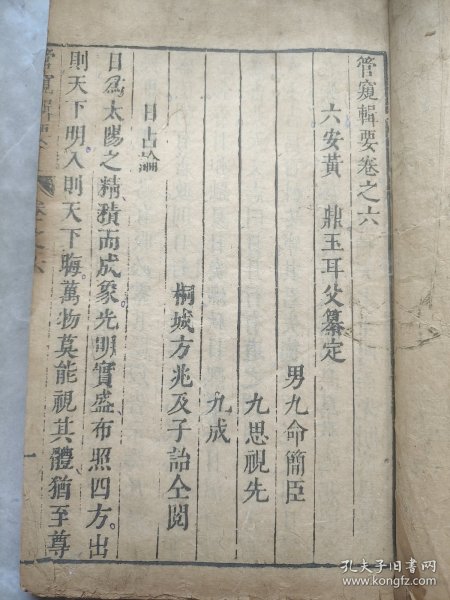 管窺輯要卷之六
六安黃　鼎玉耳父纂定
男九命簡臣
九思視先
九成
桐城方兆及子詒仝閱
日占論
日爲太陽之精積而成象光明實盛布照四方。出
則天下明入則天下晦萬物莫能視其體猶至尊
管窺輯要
卷之六
一
孔夫子旧书网
www.kongfz.com